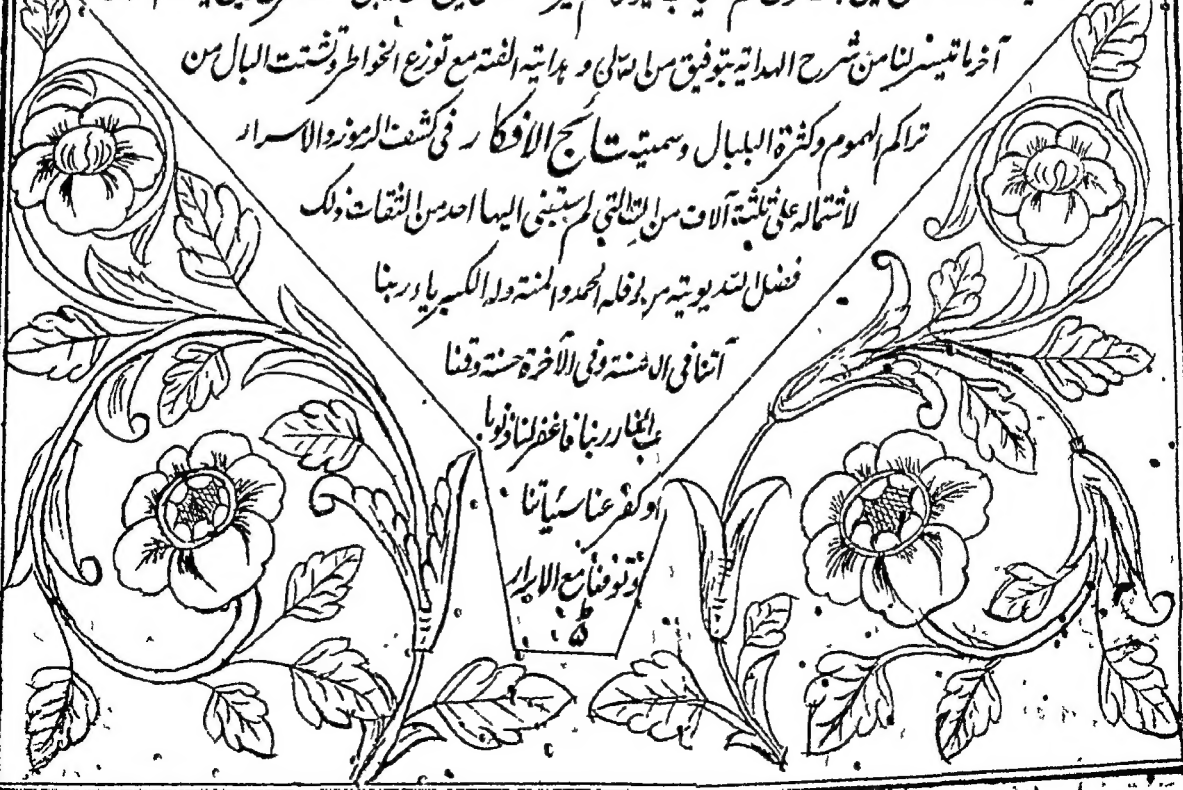 آخر ما تيسر لنا من شرح الهداية بتوفيق من الله تعالى و هدايته الفته مع توزع الخواطر و تشتت البال من
تراكم الهموم و كثرة البلبال و سميته نتائج الأفكار فى كشف الرموز و الاسرار
لاشتماله على ثلثة آلاف من التى لم يسبقنى اليها احد من الثقات ذلك
فضل الله يوتيه من فله الحمد و المنة و له الكبرياء ربنا
آتنا فى الدنيا حسنة و فى الآخرة حسنة و قنا
عذاب النار ربنا فاغفر لنا ذنوبنا
و كفر عنا سيئاتنا
و توفنا مع الابرار